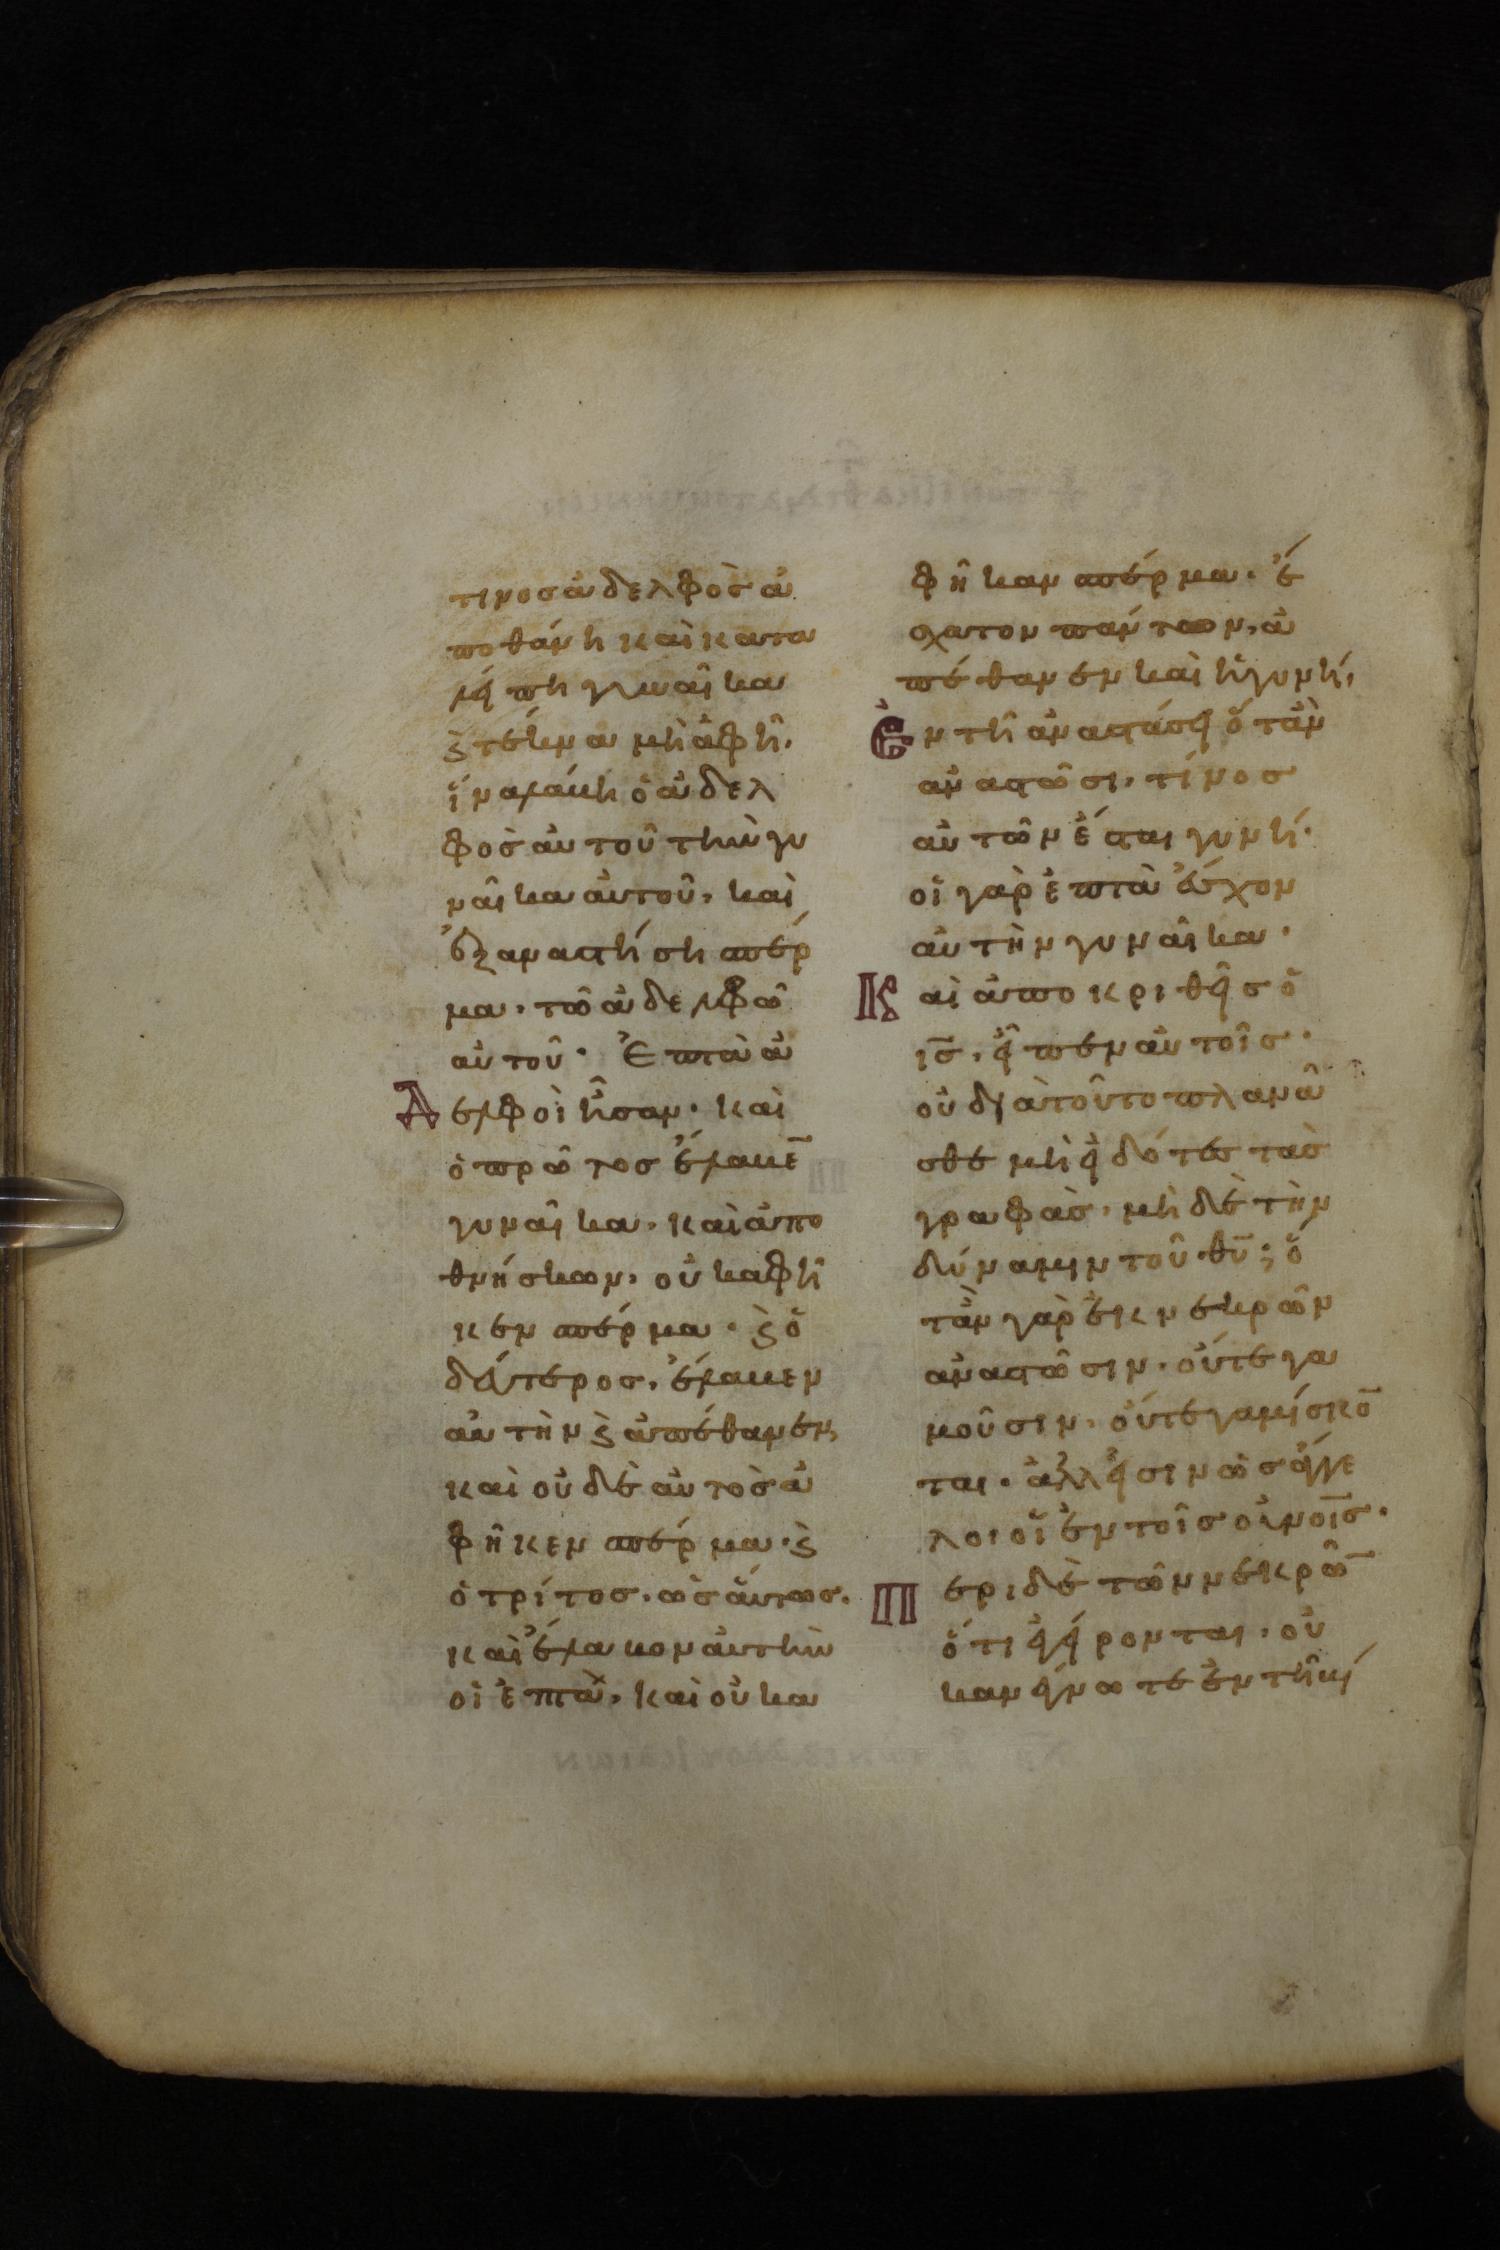 τινοσ ἀδελφὸσ ἀ
ποθάνη καὶ κατα
λείπη γυναῖκα
ϗ τέκνα μὴ ἀφῆ,
ἵνα λάβη ὁ ἀδελ
φὸσ αὐτοῦ τὴν γυ
ναῖκα αὐτοῦ, καὶ
ἐξαναστήση σπέρ
μα, τῶ ἀδελφῶ
αὐτοῦ· Ἑπτὰ ἀ
Δελφοὶ ἦσαν· καὶ
ὁ πρῶτοσ ἔλαβε̅
γυναῖκα, καὶ ἀπο
θνήσκων, οὐκ ἀφῆ
κεν σπέρμα· ϗ ὁ
δεύτεροσ, ἔλαβεν
αὐτὴν ϗ ἀπέθανεν,
καὶ οὐδὲ αὐτὸσ ἀ
φῆκεν σπέρμα· ϗ
ὁ τρίτοσ, ὡσάυτωσ.
καὶ ἔλαβον ἀυτὴν
οἱ ἑπτὰ, καὶ οὐκ ἀ
φῆκαν σπέρμα· ἐ
σχατον πάντων, ἀ
πέθανεν καὶ ἡ γυνή,
Ἐν τῆ ἀναστάσει ὅτὰν
ἀναστῶσι, τίνοσ
αὐτῶν ἔσται γυνή·
οἱ γὰρ ἑπτὰ ἔσχον
αὐτὴν γυναῖκα·
Καὶ ἀποκριθεῖσ ὁ
ισ̅, εἶπεν αὐτοῖσ·
οὐ διὰ τοῦτο πλανᾶ
σθε μὴ εἰδότεσ τὰσ
γραφὰσ, μὴ δὲ τὴν
δύναμιν τοῦ θυ̅; ὅ
τὰν γὰρ ἐκ νεκρῶν
ἀναστῶσιν, οὔτε γα
μοῦσιν, οὔτε γαμίσκο̅
ται, ἀλλ' εἰσιν ὡσ ἄγγε
λοι οἱ ἐν τοῖσ ουνοι̅σ·
Περι δὲ τῶν νεκρῶ̅
ὅτι ἐγείρονται, οὐ
κ ἀνέγνωτε ἐν τῆ βί